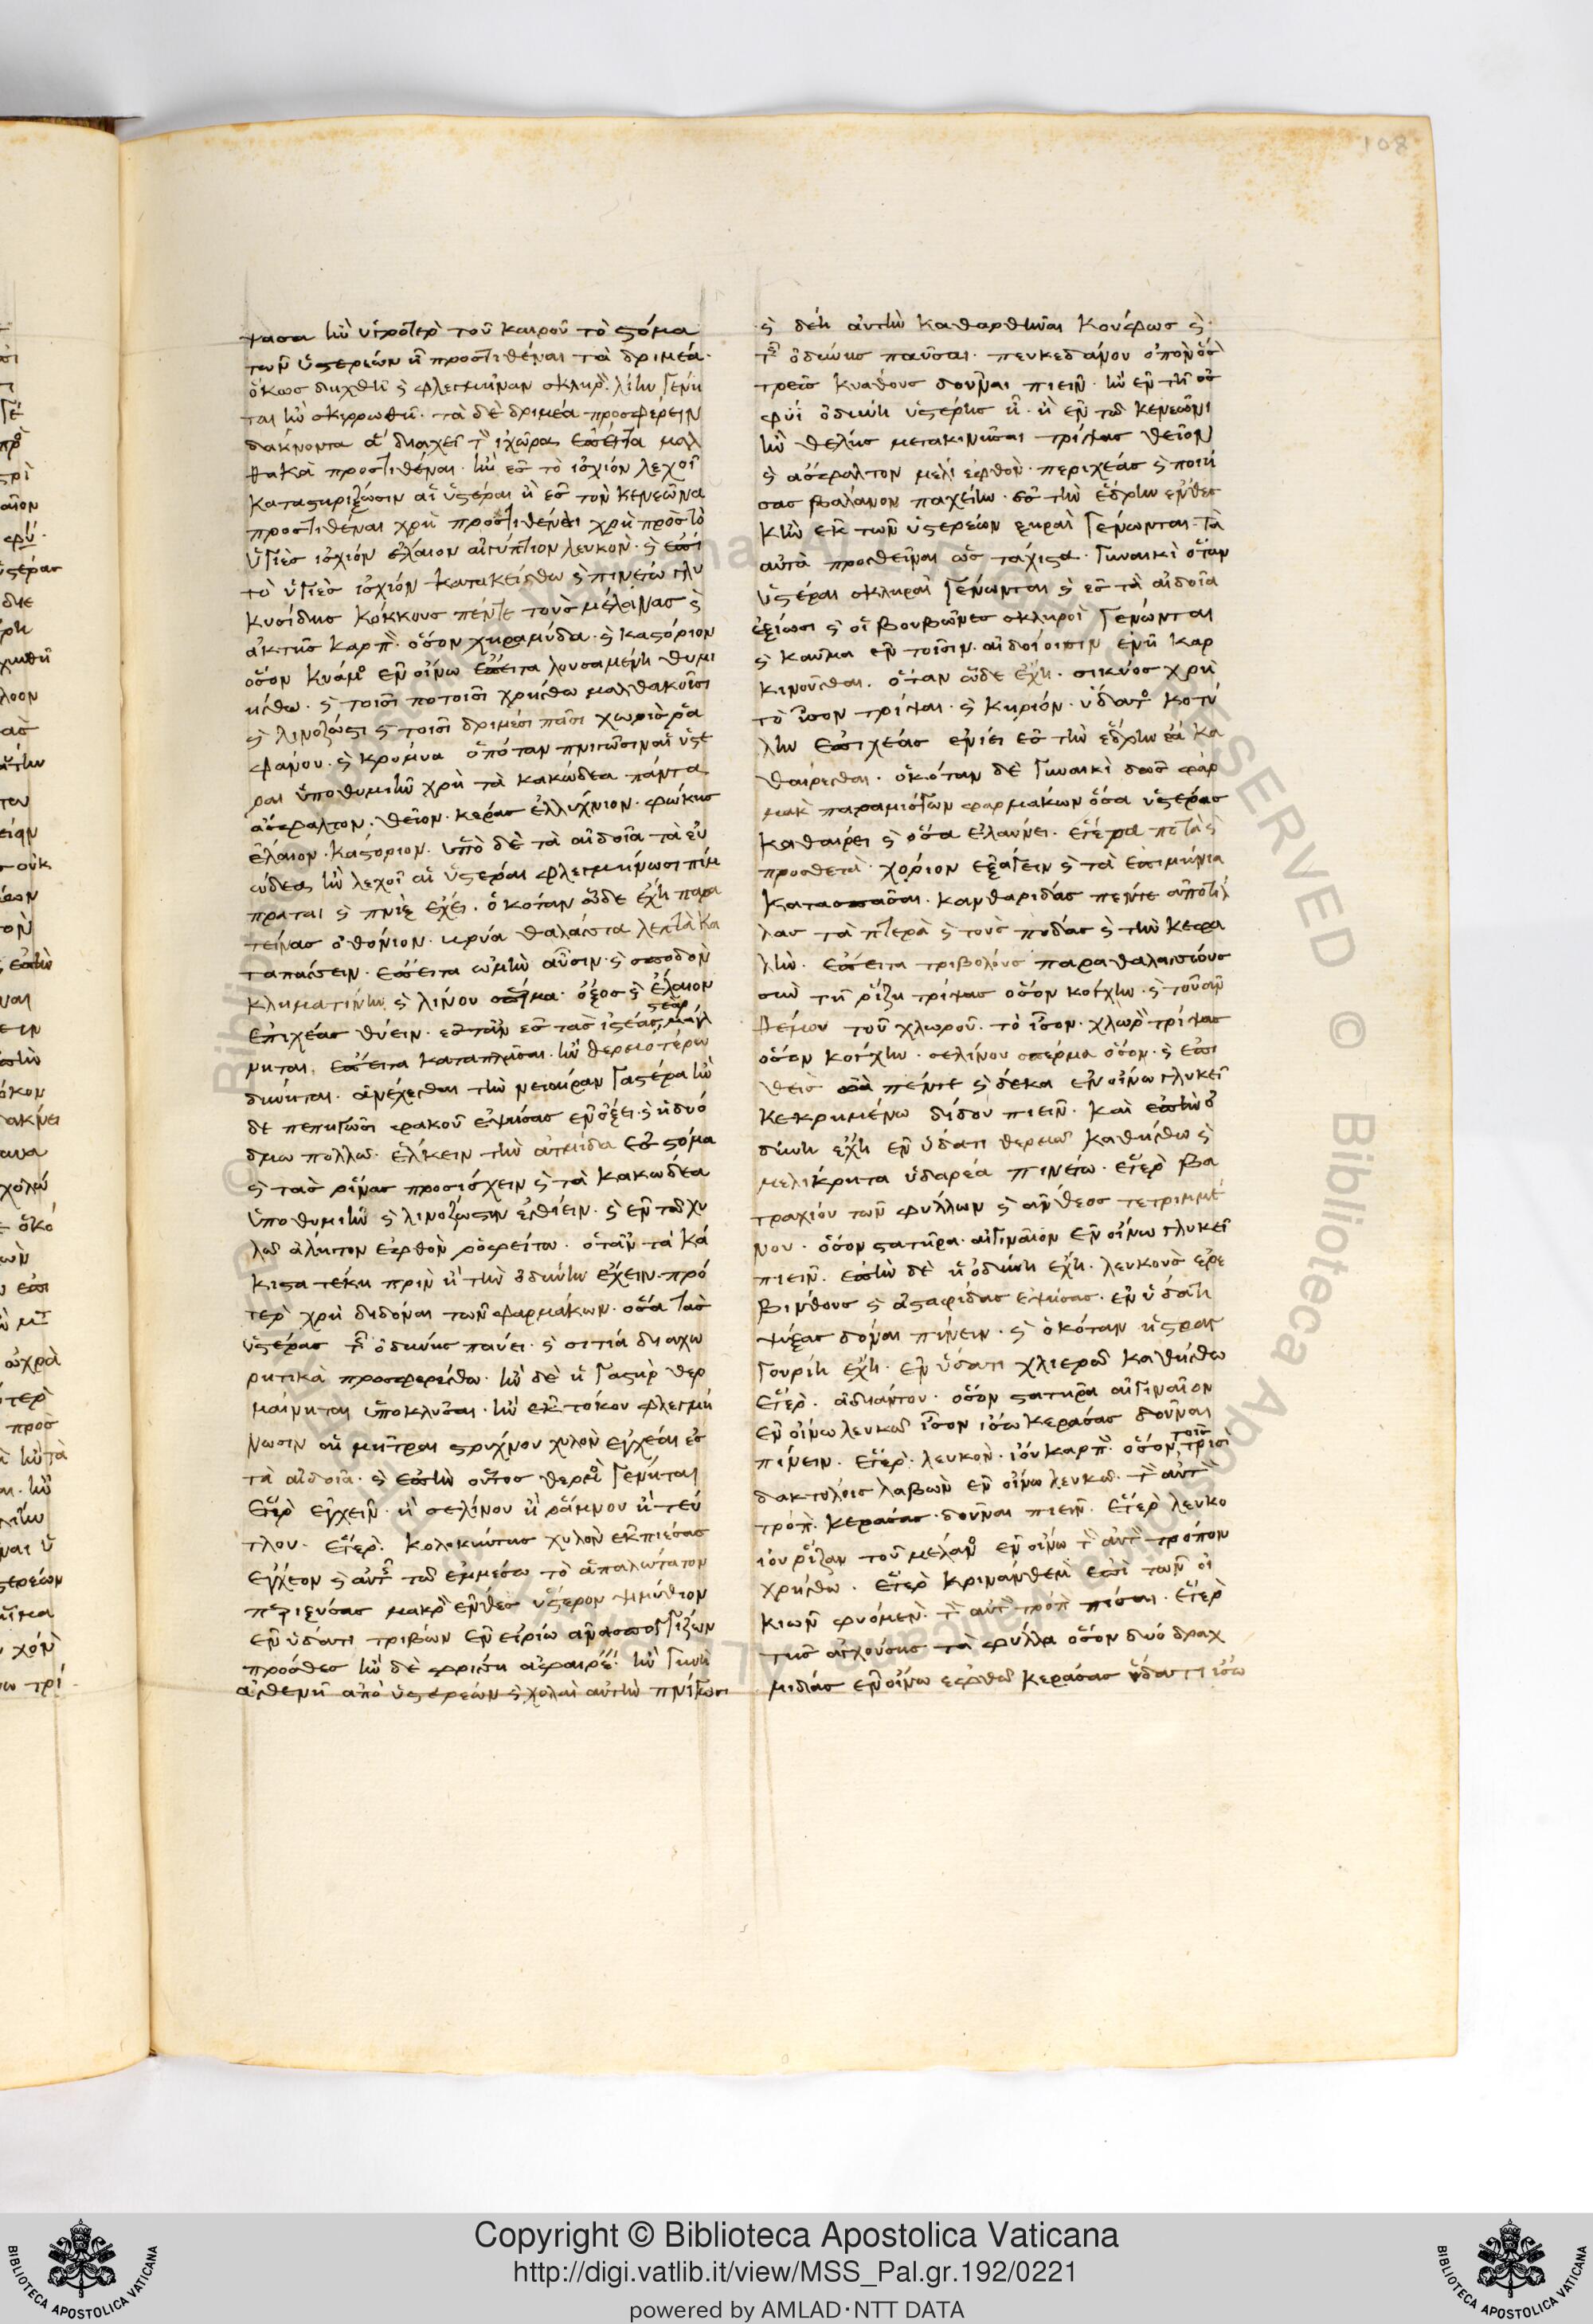 108
ψασα ἢν ὑγρότερον τοῦ καιροῦ τὸ στόμα
τῶν ὑστερέων ᾖ προστιθέναι τὰ δριμέα·
ὅκως δηχθῇ καὶ φλεγμήναν σκληρὸν λίην γένη
ται ἢν σκιρρωθῇ· τὰ δὲ δριμέα προσφέρειν
δάκνοντα ἃ διαχεῖ τοὺς ἰχῶρας ἔπειτα μαλ
θακὰ προστιθέναι· ἢν ἐς τὸ ἰσχίον λεχοῖ
καταστηρίξωσιν αἱ ὑστέραι ἢ ἐς τὸν κενεῶνα
προστιθέναι χρὴ προστιθέναι χρὴ πρὸς τὸ
ὑγιὲς ἰσχίον ἔλαιον αἰγύπτιον λευκὸν· καὶ ἐπὶ
τὸ ὑγιὲς ἰσχίον κατακείσθω καὶ πινέτω γλυ
κυσίδης κόκκους πέντε τοὺς μέλαινας καὶ
ἀκτῆς καρπὸν ὅσον χηραμύδα· καὶ καστόριον
ὅσον κύαμον ἐν οἴνω ἔπειτα λουσαμένη θυμι
ήσθω· καὶ τοῖσι ποτοῖσι χρήσθω μαλθακοῖσι
καὶ λινοζώσι καὶ τοῖσι δριμέσι πᾶσι χωρὶς ῥα
φάνου· καὶ κρομύα ὁπόταν πνίγωσιν αἱ ὑστέ
ραι ὑποθυμιῆν χρὴ τὰ κακώδεα πάντα
ἄσφαλτον· θεῖον· κέρας ἐλλύχνιον· φώκης
ἔλαιον· καστόριον· ὑπὸ δὲ τὰ αἰδοῖα τὰ εὐ
ώδεα ἢν λεχοῖ αἱ ὑστέραι φλεγμήνωσι πίμ
πραται καὶ πνὶξ ἔχει· ὁκόταν ὧδε ἔχη παρα
τείνας ὀθόνιον· κρύα θαλάσσια λεπτὰ κα
ταπάσσειν· ἔπειτα ὠμὴν αὖσιν· καὶ σποδὸν
κληματίνην καὶ λίνου σπέρμα· ὄξος καὶ ἔλαιον
στέαρ
ἐπιχέας θύειν· ἐπὰν ἐς τὰς
μηται· ἔπειτα καταπλῆσαι· ἢν θερμοτέρω
δύνηται· ἀνέχεσθαι τὴν νειαίραν γαστέρα ἢν
δὲ πεπηγῶσι φακοῦ ἑψήσας ἐν ὄξει· καὶ ἡδυό
δμω πολλῷ· ἕλκειν τὴν ἀτμίδα ἐς στόμα
καὶ τὰς ῥῖνας προσίσχειν καὶ τὰ κακώδεα
ὑποθυμιῆν καὶ λινοζώστην ἐσθίειν· καὶ ἐν τῷ χυ
λῷ ἄλητον ἑφθὸν ῥοφείτω· ὅταν τὰ κά
κιστα τέκη πρὶν ἢ τὴν ὀδύνην ἔχειν· πρό
τερον χρὴ διδόναι τῶν φαρμάκων· ὅσα τὰς
ὑστέρας τῆς ὀδύνης παύει· καὶ σιτία διαχω
ρητικὰ προσφερέσθω· ἢν δὲ ἡ γαστὴρ θερ
μαίνηται ὑποκλύσαι· ἢν ἐκ τόκου φλεγμή
νωσιν αἱ μῆτραι στρύχνου χυλὸν ἐγχέαι ἐς
τὰ αἰδοῖα· καὶ ἐπὴν οὗτος θερμὸς γένηται
ἕτερον ἐγχεῖν· ἢ σελίνου ἢ ῥάμνου ἢ τεύ
τλου· ἕτερον· κολοκύντης χυλὸν ἐκπιέσας
ἔγχεον καὶ αὐτῆς τῷ ἐμμέσω τὸ ἁπαλώτατον
περιξύσας μακρὸν ἔνθες ὕστερον ψιμύθιον
ἐν ὕδατι τρίβων ἐν εἰρίω ἀνασπογγίζων
πρόσθες ἢν δὲ φρίσση ἀφαιρέειν· ἢν γυνὴ
ἀσθενῇ ἀπὸ ὑστερέων καὶ χολαὶ αὐτὴν πνίγωσι
καὶ δέη αὐτὴν καθαρθῆναι κούφως καὶ
τῆς ὀδύνης παῦσαι· πευκεδάνου ὀπὸν ὅσον
τρεῖς κυάθους δοῦναι πιεῖν· ἢν ἐν τῇ ὀσ
φύϊ ὀδύνη ὑστέρης ᾖ· ἢ ἐν τῷ κενεῶνι
ἢν θέλης μετακινῆσαι τρίψας θεῖον
καὶ ἄσφαλτον μέλι ἑφθὸν· περιχέας καὶ ποιή
σας βάλανον παχείην· ἐς τὴν ἕδρην ἔνθες
κἢν ἐκ τῶν ὑστερέων ξηραὶ γένωνται· τὰ
αὐτὰ προσθεῖναι ὡς τάχιστα· γυναικὶ ὅταν
ὑστέραι σκληραὶ γένωνται καὶ ἐς τὰ αἰδοῖα
ἐξίωσι καὶ οἱ βουβῶνες σκληροὶ γένωνται
καὶ καῦμα ἐν τοῖσιν αἰδοίοισιν ἐνῇ καρ
κινοῦσθαι· ὅταν ὧδε ἔχη· σικύος χρὴ
τὸ ἴσον τρίψαι· καὶ κηρίον· ὕδατος κοτύ
λην ἐπιχέας ἐνίει ἐς τὴν ἕδρην ἐᾶ κα
θαίρεσθαι· ὁκόταν δὲ γυναικὶ δῶς φάρ
μακον παραμίσγων φαρμάκων ὅσα ὑστέρας
καθαίρει καὶ ὅσα ἐλαύνει· ἕτερα ποτὰ καὶ
προσθετὰ· χόριον ἐξάγειν καὶ τὰ ἐπιμήνια
κατασπάσαι· κανθαρίδας πέντε ἀποτίλ
λας τὰ πτερὰ καὶ τοὺς πόδας καὶ τὴν κεφα
λὴν· ἔπειτα τριβόλους παραθαλασσίους
σὺν τῇ ῥίζη τρίψας ὅσον κόγχην· καὶ τοῦ ἀν
θέμου τοῦ χλωροῦ· τὸ ἴσον· χλωρὸν τρίψας
ὅσον κόγχην· σελίνου σπέρμα ὅσον· καὶ
πέντε καὶ δέκα ἐν οἴνω γλυκεῖ
κεκρημένω δίδου πιεῖν· καὶ ἐπὴν ὀ
δύνη ἔχη ἐν ὕδατι θερμῷ καθήσθω καὶ
μελίκρητα ὑδαρέα πινέτω· ἕτερον βα
τραχίου τῶν φύλλων καὶ ἄνθεος τετριμμέ
νου· ὅσον στατῆρα αἰγιναῖον ἐν οἴνω γλυκεῖ
πιεῖν· ἐπὴν δὲ ἡ ὀδύνη ἔχη· λευκοὺς ἐρε
βίνθους καὶ ἀσταφίδας ἑψήσας· ἐν ὕδατι
ψύξας δοῦναι πίνειν· καὶ ὁκόταν ἡ στραγ
γουρίη ἔχη· ἐν ὕδατι χλιερῷ καθήσθω
ἕτερον· ἀδιάντου· ὅσον στατῆρα αἰγιναῖον
ἐν οἴνω λευκῷ ἴσον ἴσω κεράσας δοῦναι
τοῖς
πίνειν· ἕτερον· λευκὸν· ἴου καρπὸν ὅσον τρισὶ
δακτύλοις λαβὼν ἐν οἴνω λευκῷ· τὸν αὐτὸν
τρόπον κεράσας· δοῦναι πιεῖν· ἕτερον λευκο
ίου ῥίζαν τοῦ μέλανος ἐν οἴνω τὸν αὐτὸν τρόπον
χρήσθω· ἕτερον κρινάνθεμον ἐπὶ τῶν οἰ
κιῶν φυόμενον· τὸν αὐτὸν τρόπον πίσαι· ἕτερον
τῆς αἰγχούσης τὰ φύλλα ὅσον δύο δραχ
μιδίας ἐν οἴνω ἑφθῷ κεράσας ὕδατι ἴσω
Copyright © Biblioteca Apostolica Vaticana
http://digi.vatlib.it/view/MSS_Pal.gr.192/0221
powered by AMLAD·NTT DATA
BIBLIOTECA APOSTOLICA VATICANA
BIBLIOTECA APOSTOLICA VATICANA